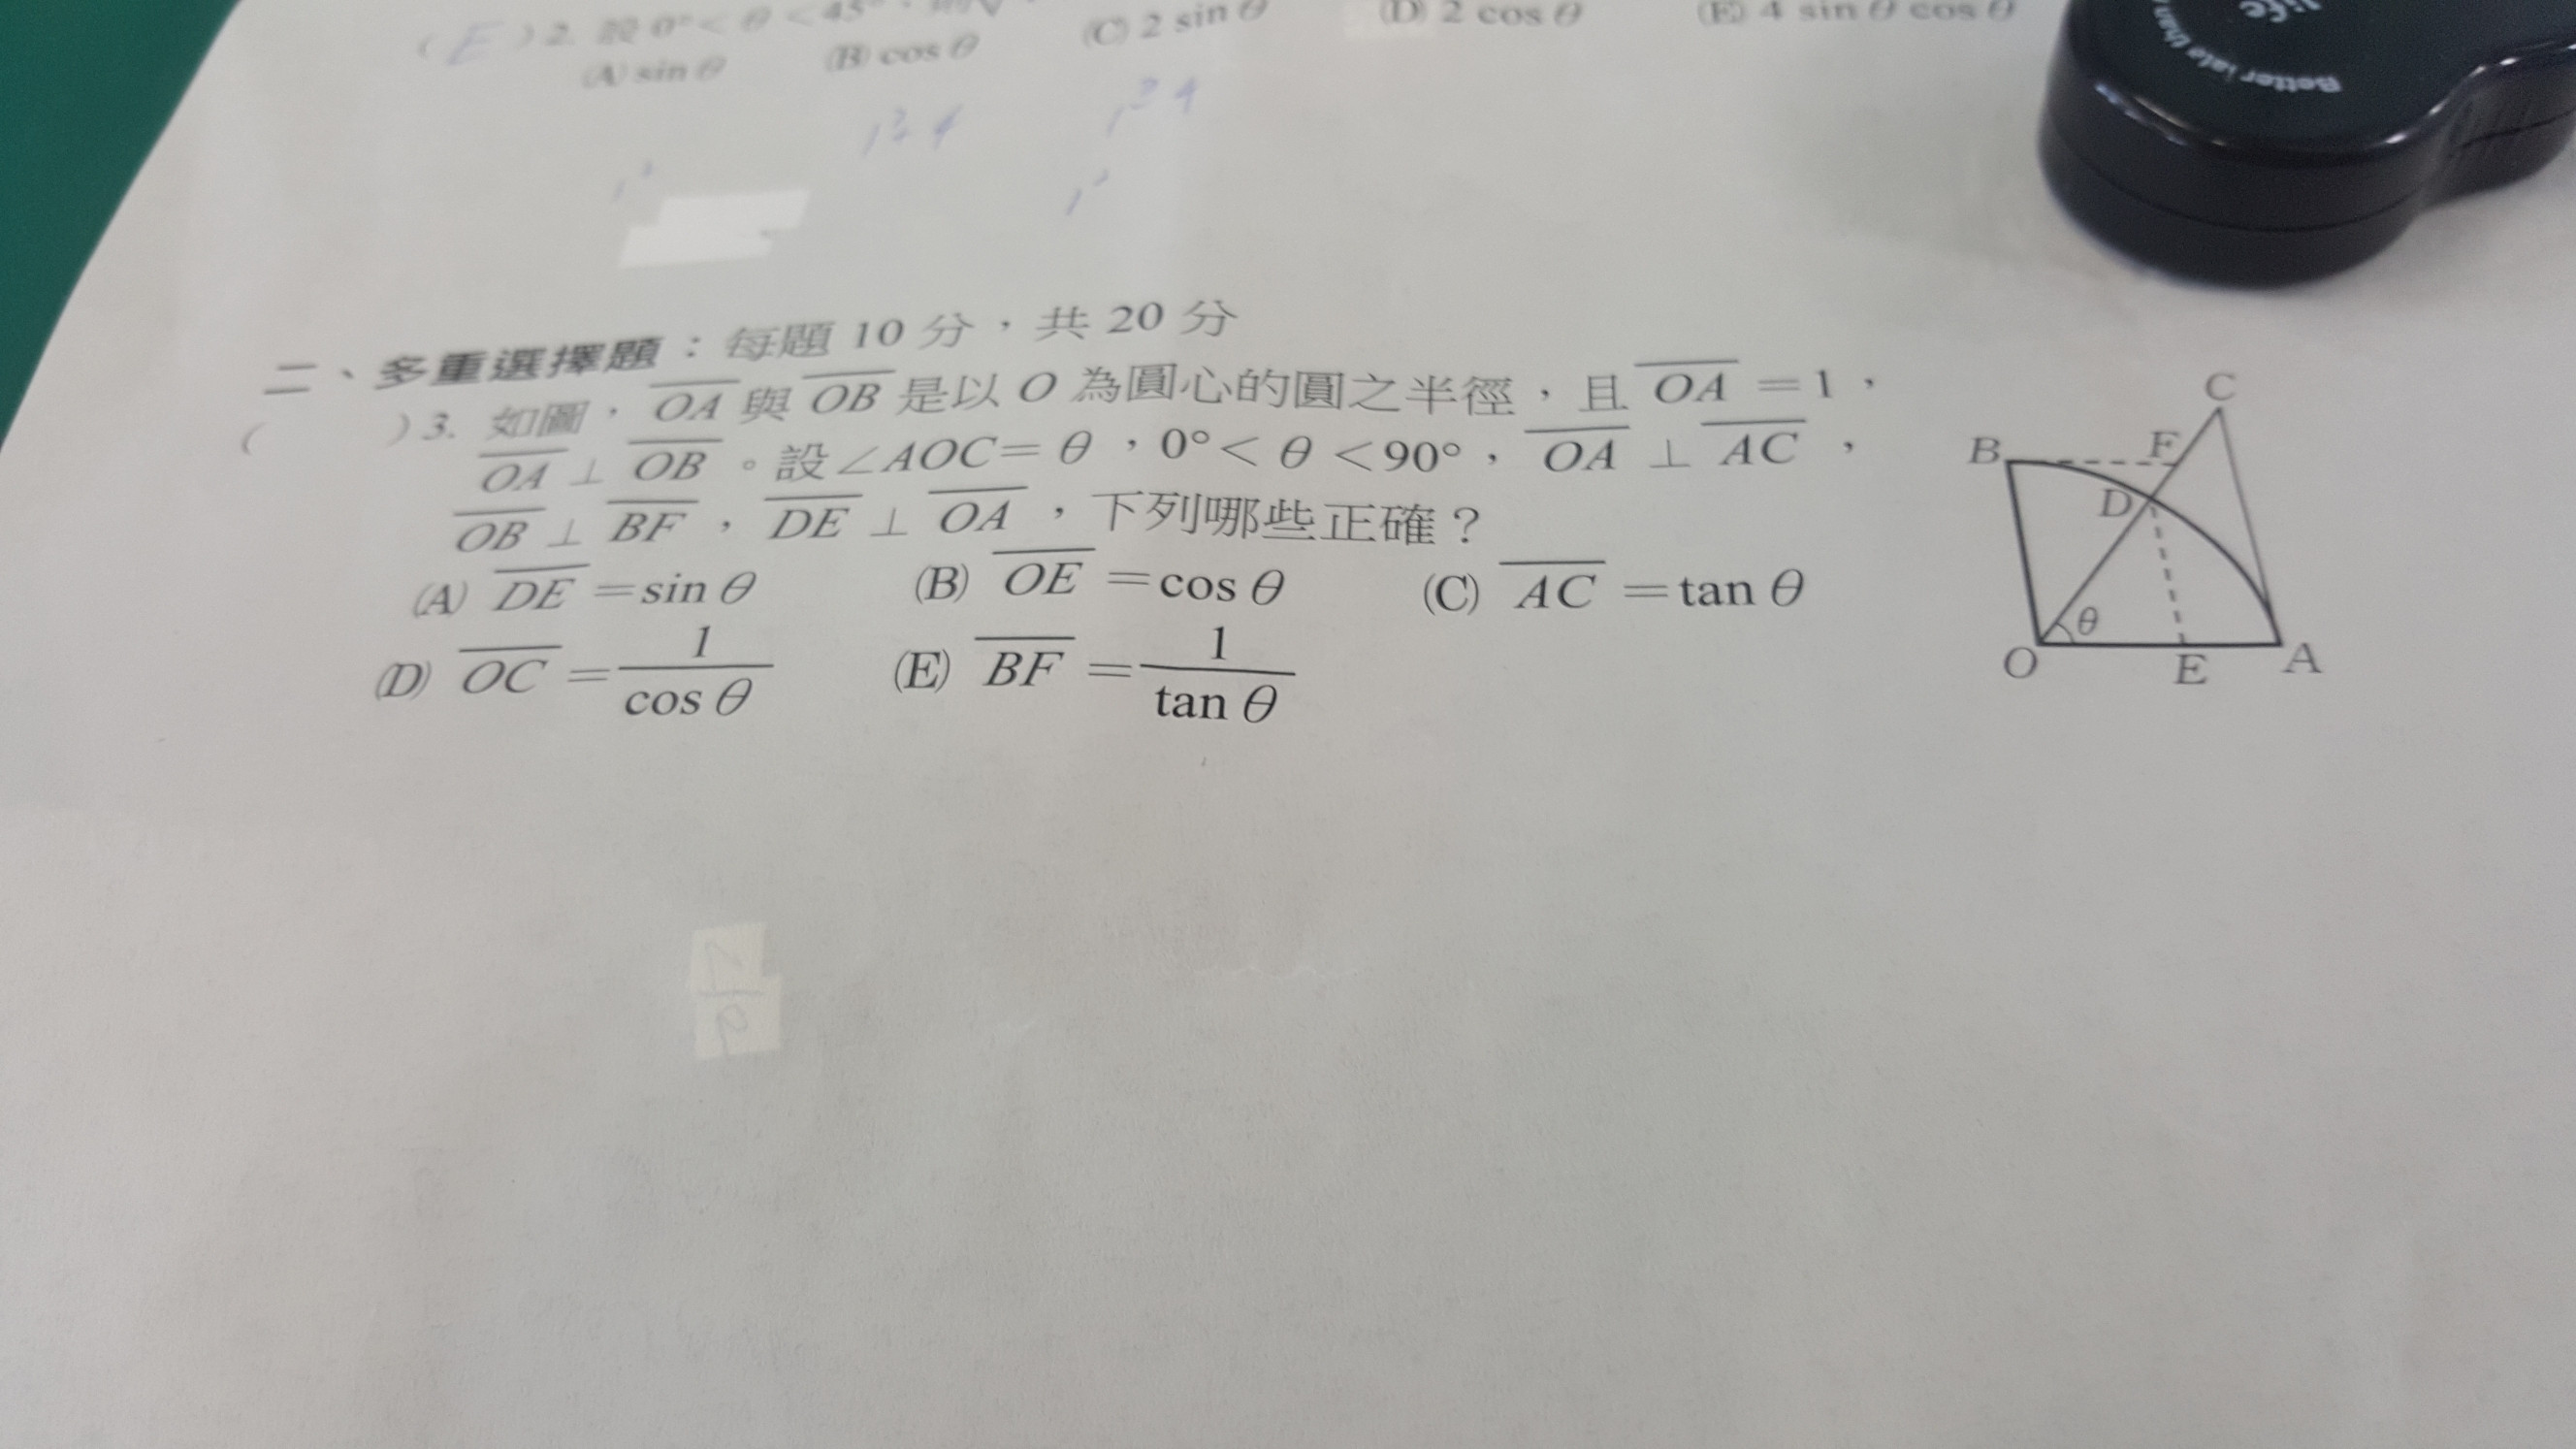 ( E ) 2. 設 0° < θ < 45°,
(A) sin θ (B) cos θ (C) 2 sin θ (D) 2 cos θ (E) 4 sin θ cos θ
Better late than
life
二、多重選擇題:每題 10 分,共 20 分
( ) 3. 如圖,OA 與 OB 是以 O 為圓心的圓之半徑,且 OA =1,
OA ⊥ OB 。設∠AOC= θ ,0°< θ <90°,OA ⊥ AC ,
OB ⊥ BF , DE ⊥ OA ,下列哪些正確?
(A) DE =sin θ (B) OE =cos θ (C) AC =tan θ
(D) OC = 1/cos θ (E) BF = 1/tan θ
C
B F
D
θ
O E A